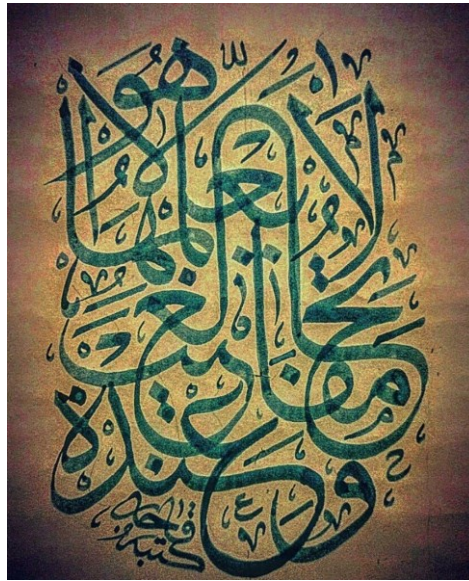 وعنده
مفاتح الغيب
لا يعلمها إلا هو
كتبه